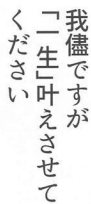 我儘ですが
「一生」叶えさせて
ください